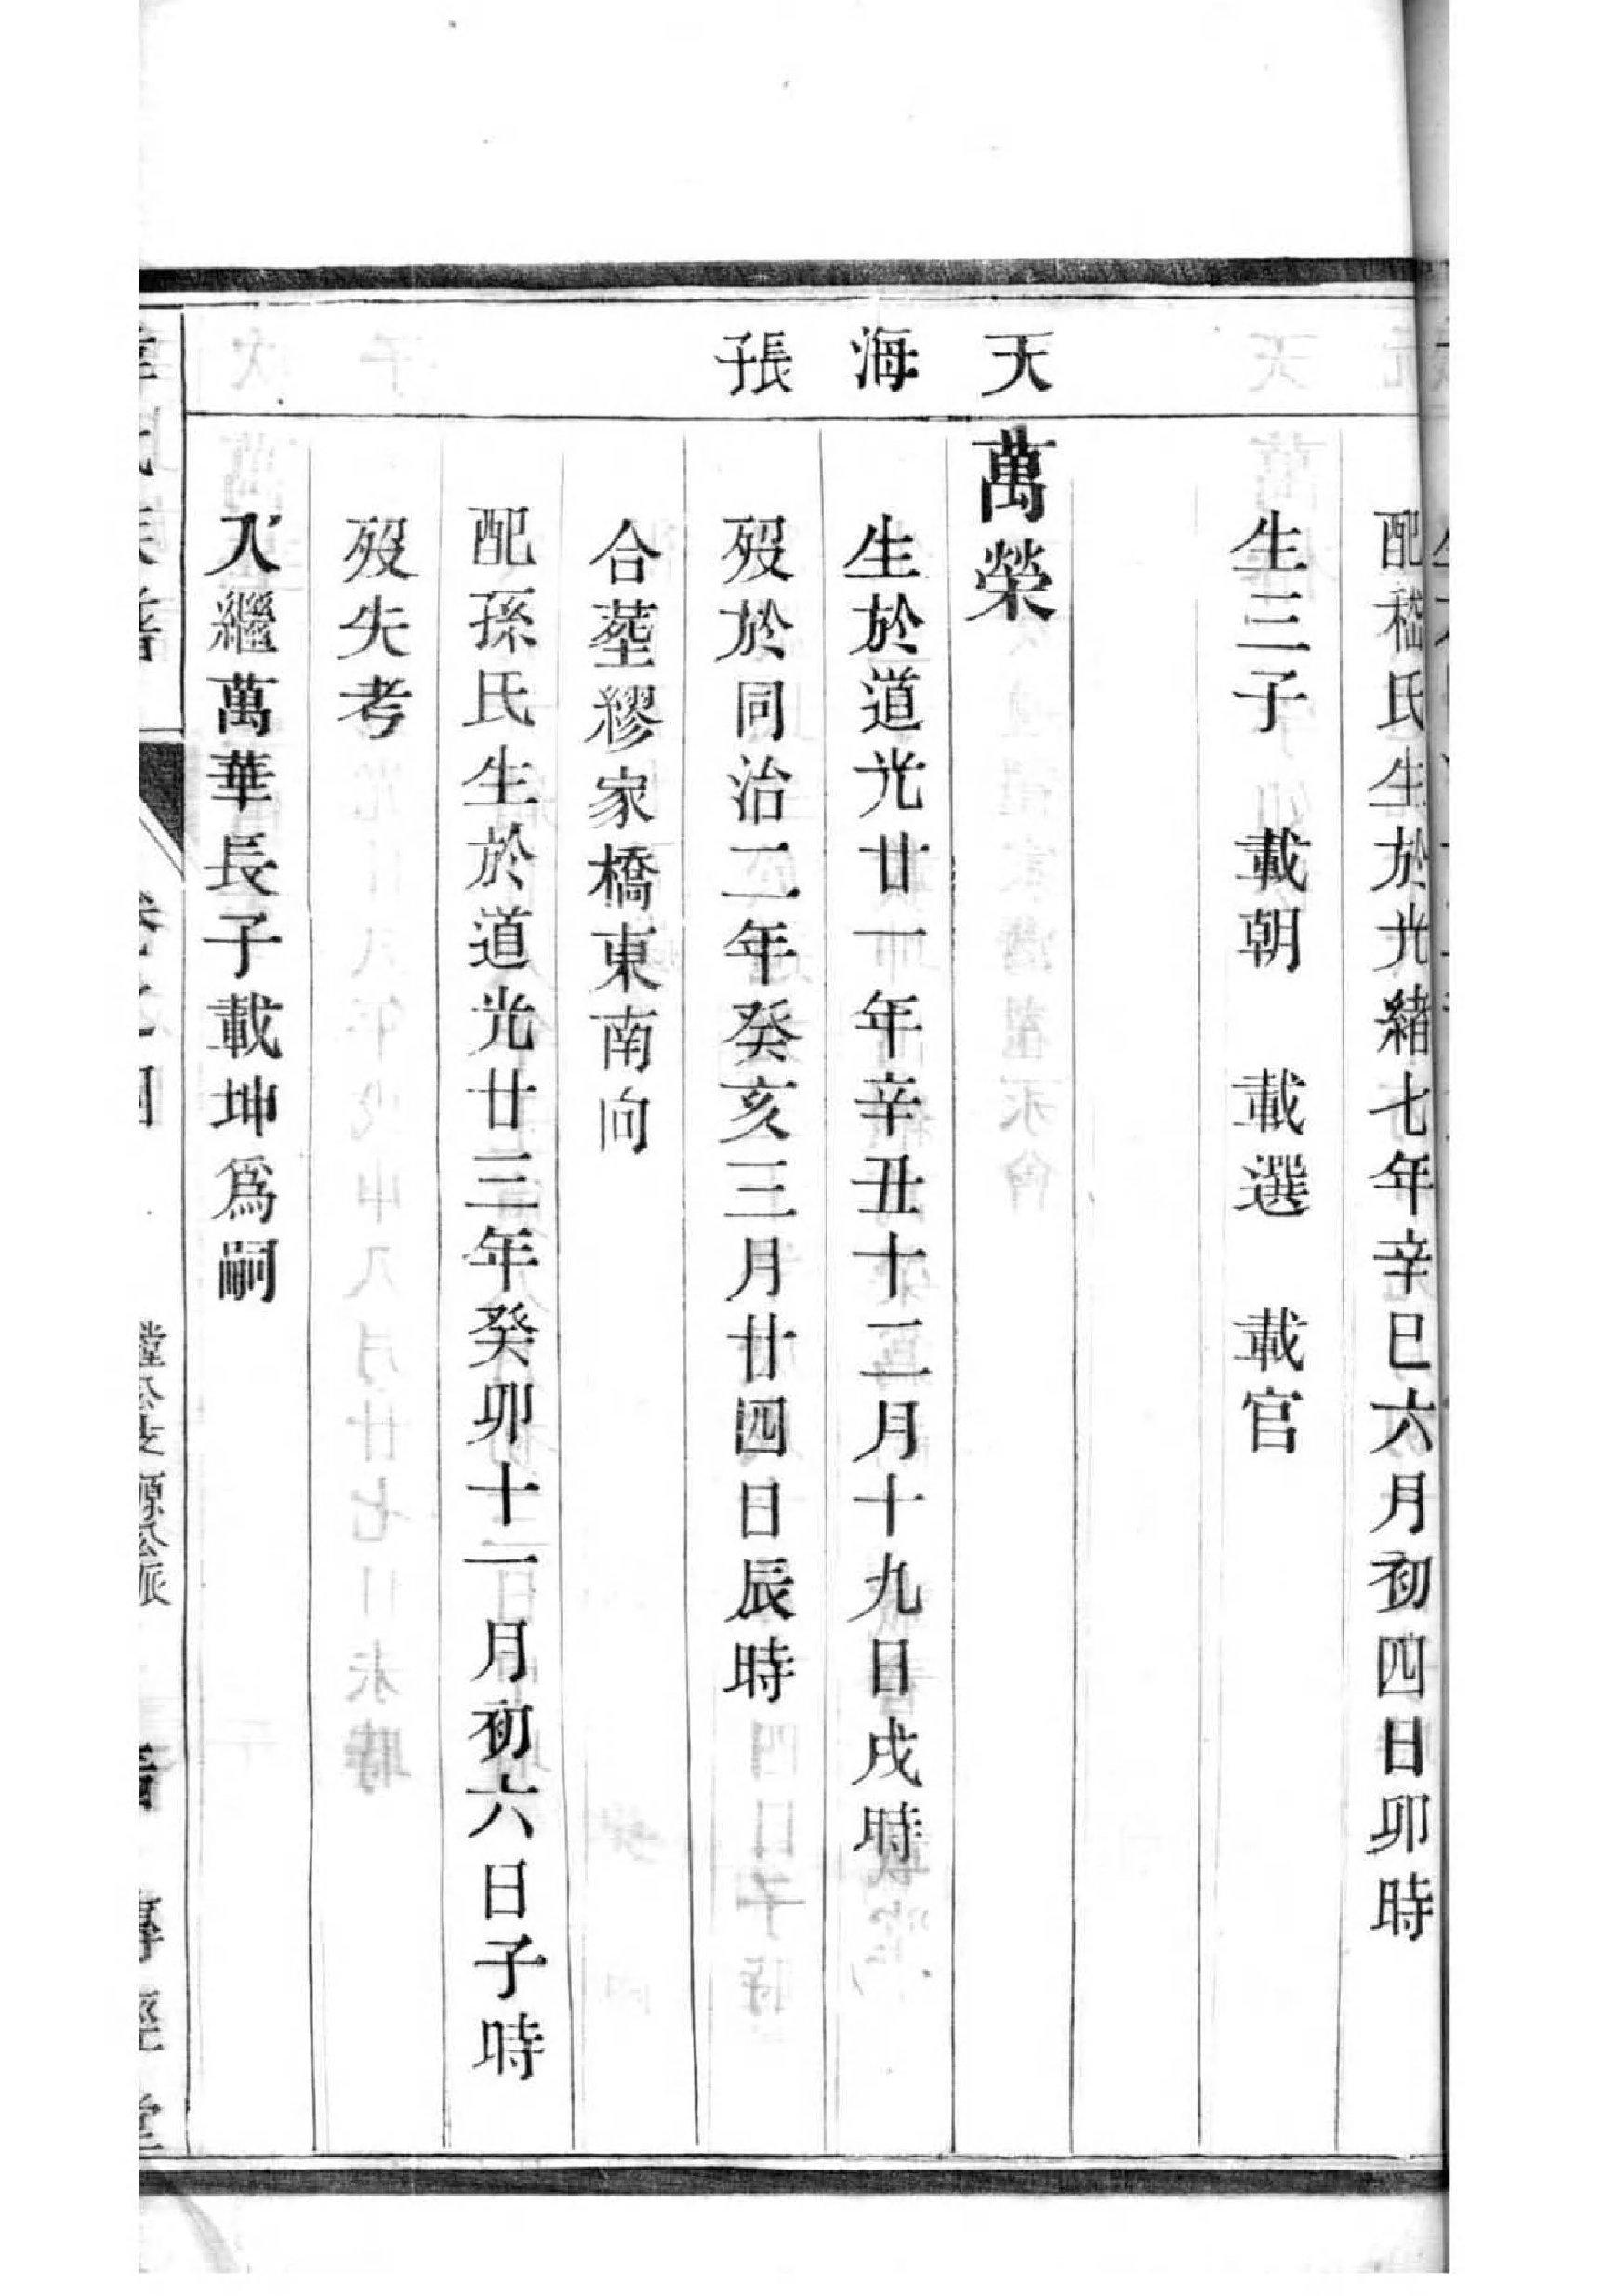 配嵇氏生於光緒七年辛巳六月初四日卯時
生三子　載朝　載選　載官
天
萬榮
海
生於道光廿一年辛丑十二月十九日戌時
張子
歿於同治二年癸亥三月廿四日辰時
合塟繆家橋東南向
配孫氏生於道光廿三年癸卯十一月初六日子時
歿失考
入繼萬華長子載坤爲嗣